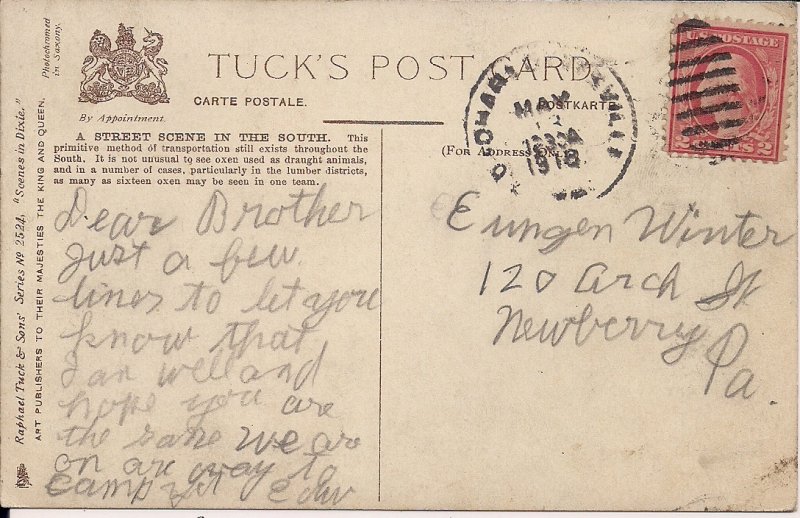 Photochromed
in Saxony.
By Appointment.
TUCK'S POST CARD
CARTE POSTALE.
POSTKARTE
(FOR ADDRESS ONLY)
MAY
1918
U.S. POSTAGE
CENTS 2
A STREET SCENE IN THE SOUTH. This
primitive method of transportation still exists throughout the
South. It is not unusual to see oxen used as draught animals,
and in a number of cases, particularly in the lumber districts,
as many as sixteen oxen may be seen in one team.
Raphael Tuck & Sons' Series No 2524, "Scenes in Dixie."
ART PUBLISHERS TO THEIR MAJESTIES THE KING AND QUEEN.
Dear Brother
Just a few
lines to let you
know that
I an well and
hope you are
the sane we are
on are way to
camp yet Edw
Eungen Winter
120 Arch St
Newberry
Pa.